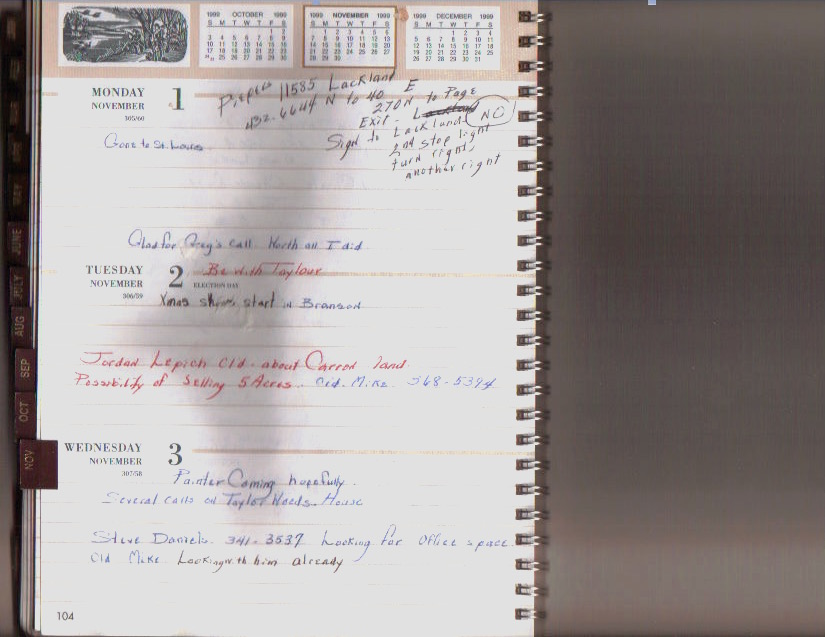 1999 OCTOBER 1999
S M T W T F S
1 2
3 4 5 6 7 8 9
10 11 12 13 14 15 16
17 18 19 20 21 22 23
24 31 25 26 27 28 29 30
1999 NOVEMBER 1999
S M T W T F S
1 2 3 4 5 6
7 8 9 10 11 12 13
14 15 16 17 18 19 20
21 22 23 24 25 26 27
28 29 30
1999 DECEMBER 1999
S M T W T F S
1 2 3 4
5 6 7 8 9 10 11
12 13 14 15 16 17 18
19 20 21 22 23 24 25
26 27 28 29 30 31
MONDAY 1
NOVEMBER
305/60
11585 Lackland E
432-6644 N to 40
270N to Page
Exit - NO
Sign to Lackland
2nd stop light
turn right,
another right
Gone to St. Louis
Glad for Greg's call. North all I did
TUESDAY 2 Be with Taylour
NOVEMBER ELECTION DAY
306/59
Xmas shows start in Branson
Jordan Lepich Cld. about Carron land.
Possibility of Selling 5 Acres. Cld. Mike. 368-5394
WEDNESDAY 3
NOVEMBER
307/58
Painter Coming hopefully.
Several calls on Taylor Woods. House
Steve Daniels. 341-3537 Looking for Office space.
Cld Mike Looking with him already
104
JUNE
JULY
AUG
SEP
OCT
NOV